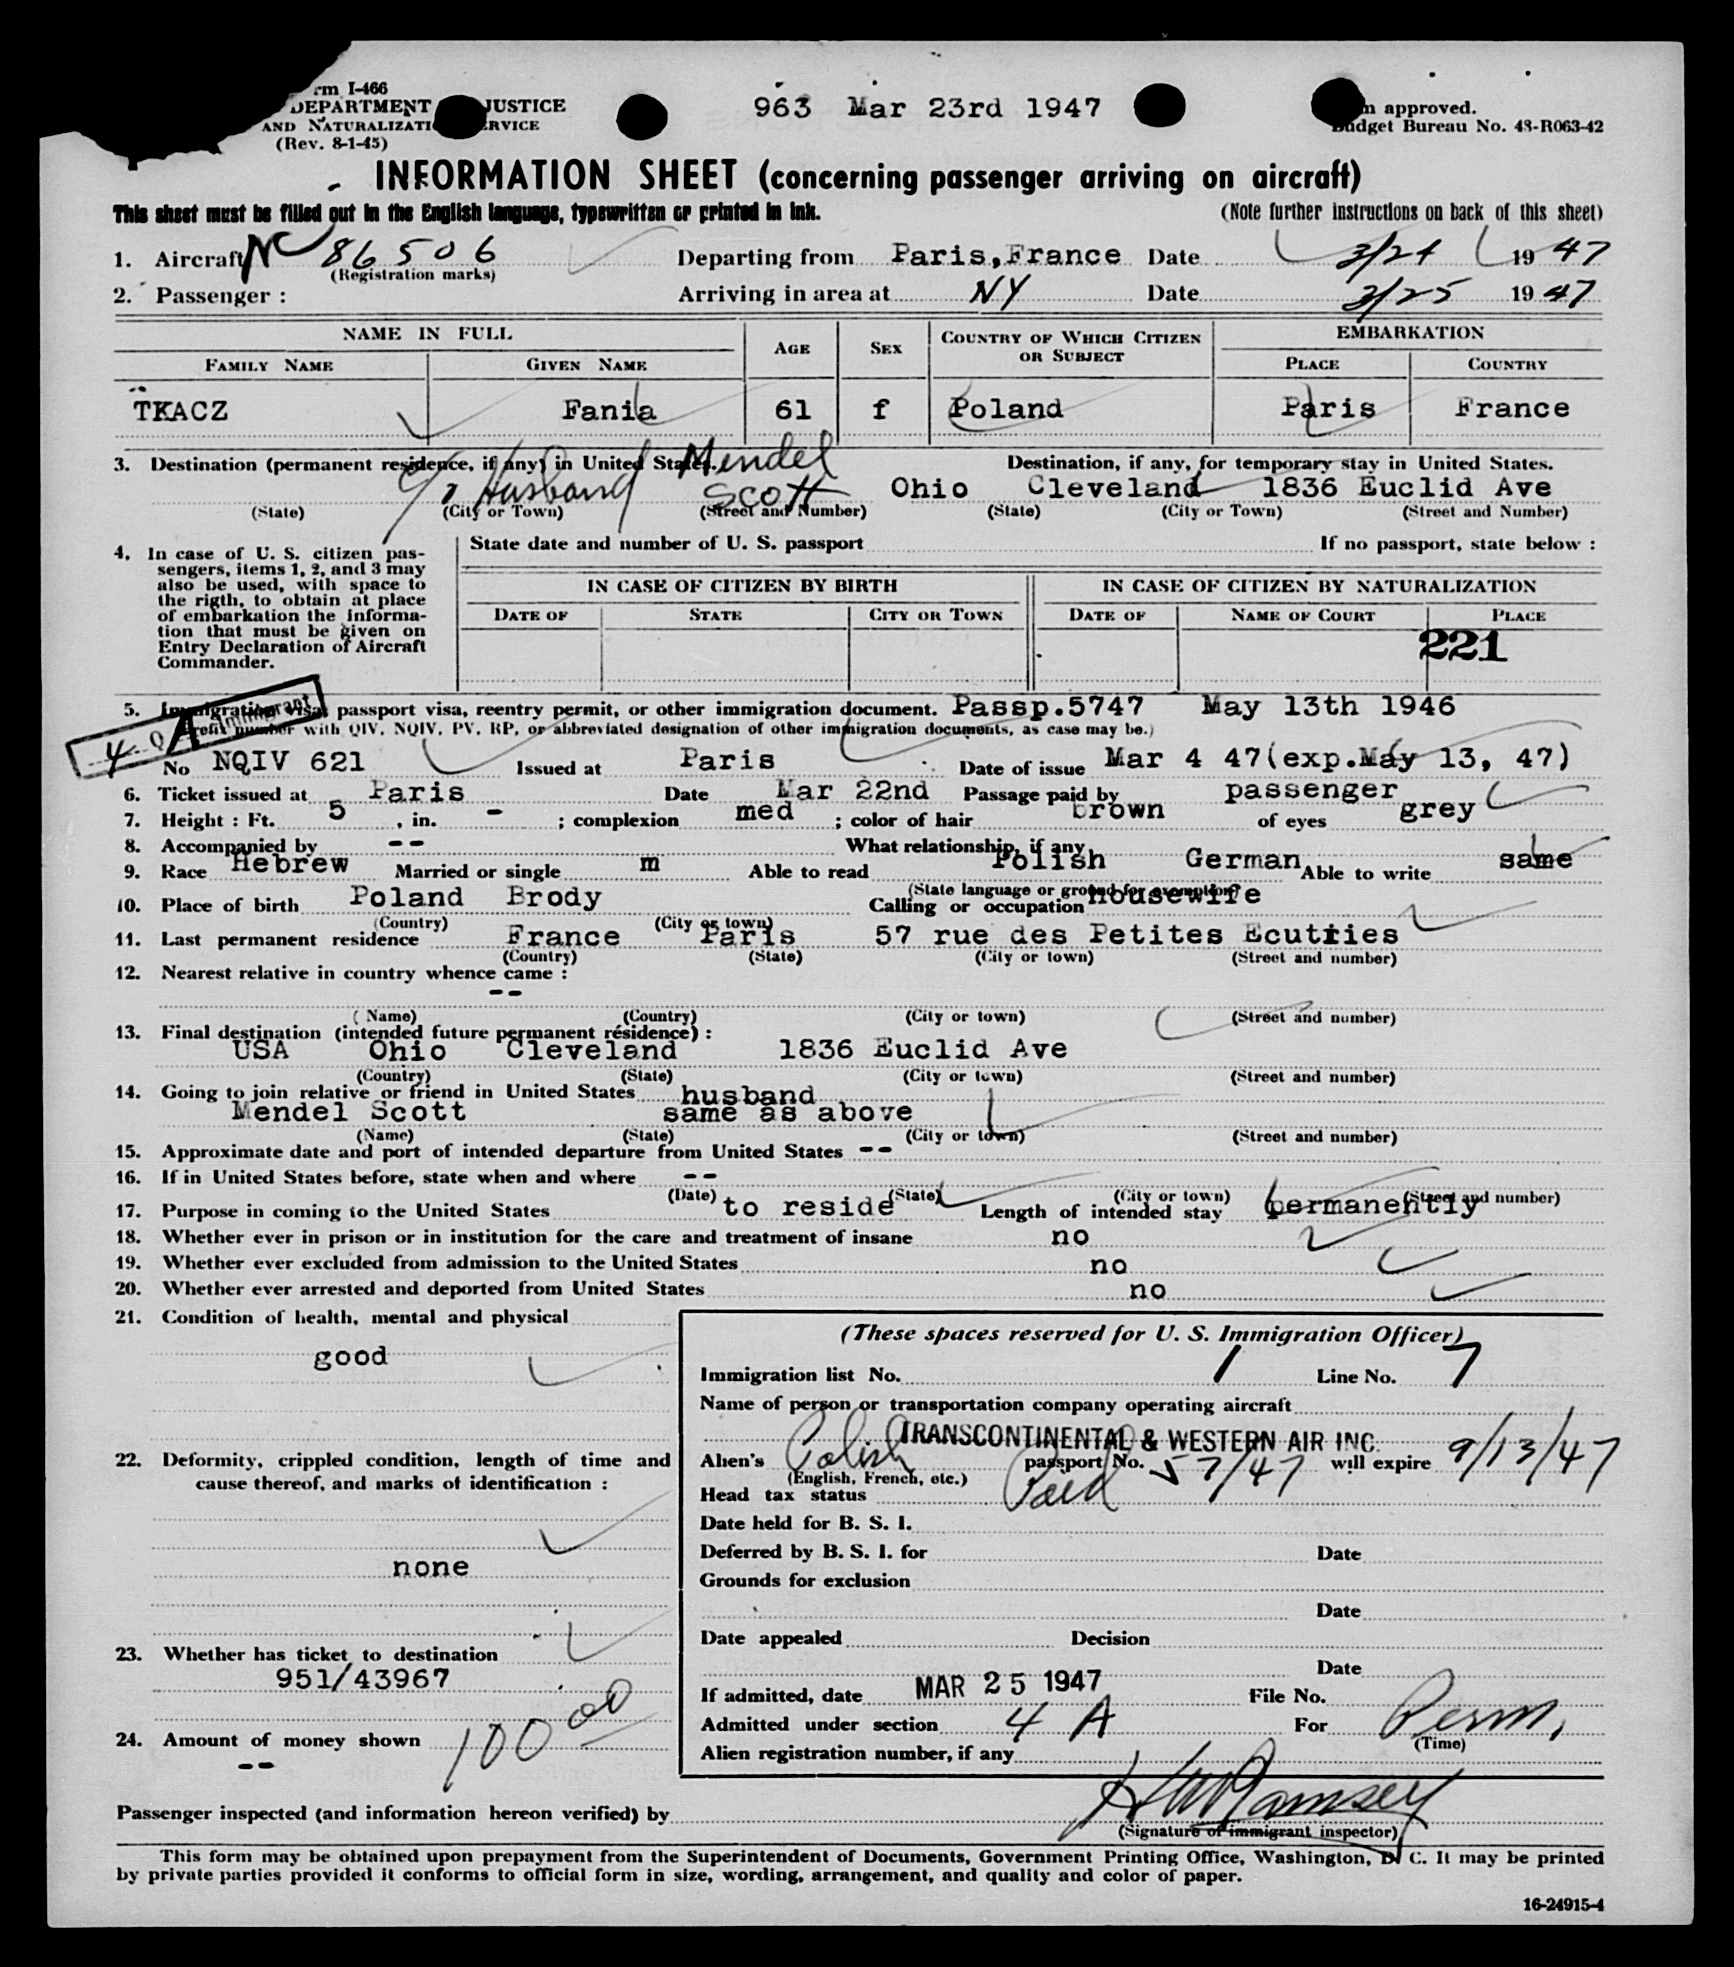 rm I-466
DEPARTMENT JUSTICE
AND NATURALIZATI RVICE
(Rev. 8-1-45)
963 Mar 23rd 1947
approved.
Budget Bureau No. 43-R063-42
INFORMATION SHEET (concerning passenger arriving on aircraft)
This sheet must be filled out in the English language, typewritten or printed in ink. (Note further instructions on back of this sheet)
1. Aircraft NC 86506 Departing from Paris,France Date 3/24 1947
(Registration marks)
2. Passenger : Arriving in area at NY Date 3/25 1947
NAME IN FULL AGE SEX COUNTRY OF WHICH CITIZEN OR SUBJECT EMBARKATION
FAMILY NAME GIVEN NAME PLACE COUNTRY
TKACZ Fania 61 f Poland Paris France
3. Destination (permanent residence, if any) in United States. Destination, if any, for temporary stay in United States.
Husband Mendel Scott Ohio Cleveland 1836 Euclid Ave
(State) (City or Town) (Street and Number) (State) (City or Town) (Street and Number)
4. In case of U. S. citizen pas-
sengers, items 1, 2, and 3 may
also be used, with space to
the rigth, to obtain at place
of embarkation the informa-
tion that must be given on
Entry Declaration of Aircraft
Commander.
State date and number of U. S. passport If no passport, state below :
IN CASE OF CITIZEN BY BIRTH IN CASE OF CITIZEN BY NATURALIZATION
DATE OF STATE CITY OR TOWN DATE OF NAME OF COURT PLACE
221
5. Immigration visa, passport visa, reentry permit, or other immigration document. Passp.5747 May 13th 1946
(Prefix number with QIV, NQIV, PV, RP, or abbreviated designation of other immigration documents, as case may be.)
4 Q A Immigrant
No NQIV 621 Issued at Paris Date of issue Mar 4 47(exp.May 13, 47)
6. Ticket issued at Paris Date Mar 22nd Passage paid by passenger
7. Height : Ft. 5 , in. - ; complexion med ; color of hair brown of eyes grey
8. Accompanied by -- What relationship, if any
9. Race Hebrew Married or single m Able to read Polish German Able to write same
(State language or ground for exemption)
10. Place of birth Poland Brody Calling or occupation housewife
(Country) (City or town)
11. Last permanent residence France Paris 57 rue des Petites Ecutries
(Country) (State) (City or town) (Street and number)
12. Nearest relative in country whence came :
--
(Name) (Country) (City or town) (Street and number)
13. Final destination (intended future permanent résidence) :
USA Ohio Cleveland 1836 Euclid Ave
(Country) (State) (City or town) (Street and number)
14. Going to join relative or friend in United States husband
Mendel Scott same as above
(Name) (State) (City or town) (Street and number)
15. Approximate date and port of intended departure from United States --
16. If in United States before, state when and where --
(Date) (State) (City or town) (Street and number)
17. Purpose in coming to the United States to reside Length of intended stay permanently
18. Whether ever in prison or in institution for the care and treatment of insane no
19. Whether ever excluded from admission to the United States no
20. Whether ever arrested and deported from United States no
21. Condition of health, mental and physical
good
22. Deformity, crippled condition, length of time and
cause thereof, and marks of identification :
none
23. Whether has ticket to destination
951/43967
24. Amount of money shown 100 00
--
(These spaces reserved for U. S. Immigration Officer)
Immigration list No. 1 Line No. 7
Name of person or transportation company operating aircraft
TRANSCONTINENTAL & WESTERN AIR INC.
Alien's Polish passport No. 57/47 will expire 9/13/47
(English, French, etc.)
Head tax status Paid
Date held for B. S. I.
Deferred by B. S. I. for Date
Grounds for exclusion
Date
Date appealed Decision
Date
If admitted, date MAR 25 1947 File No.
Admitted under section 4 A For Perm.
(Time)
Alien registration number, if any
Passenger inspected (and information hereon verified) by HW Ramsey
(Signature of immigrant inspector)
This form may be obtained upon prepayment from the Superintendent of Documents, Government Printing Office, Washington, D. C. It may be printed
by private parties provided it conforms to official form in size, wording, arrangement, and quality and color of paper.
16-24915-4